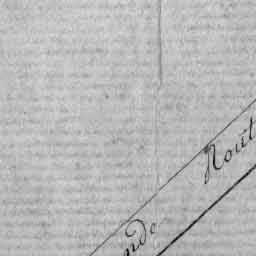 nde Rout